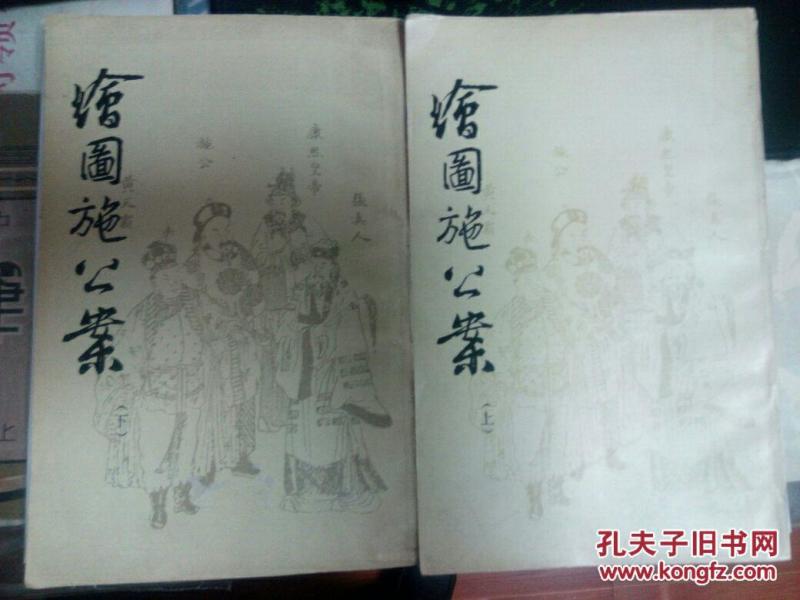 繪圖施公案
(下)
黃天霸
施公
康熙皇帝
張真人
繪圖施公案
(上)
黃天霸
施公
康熙皇帝
張真人
上
孔夫子旧书网
www.kongfz.com